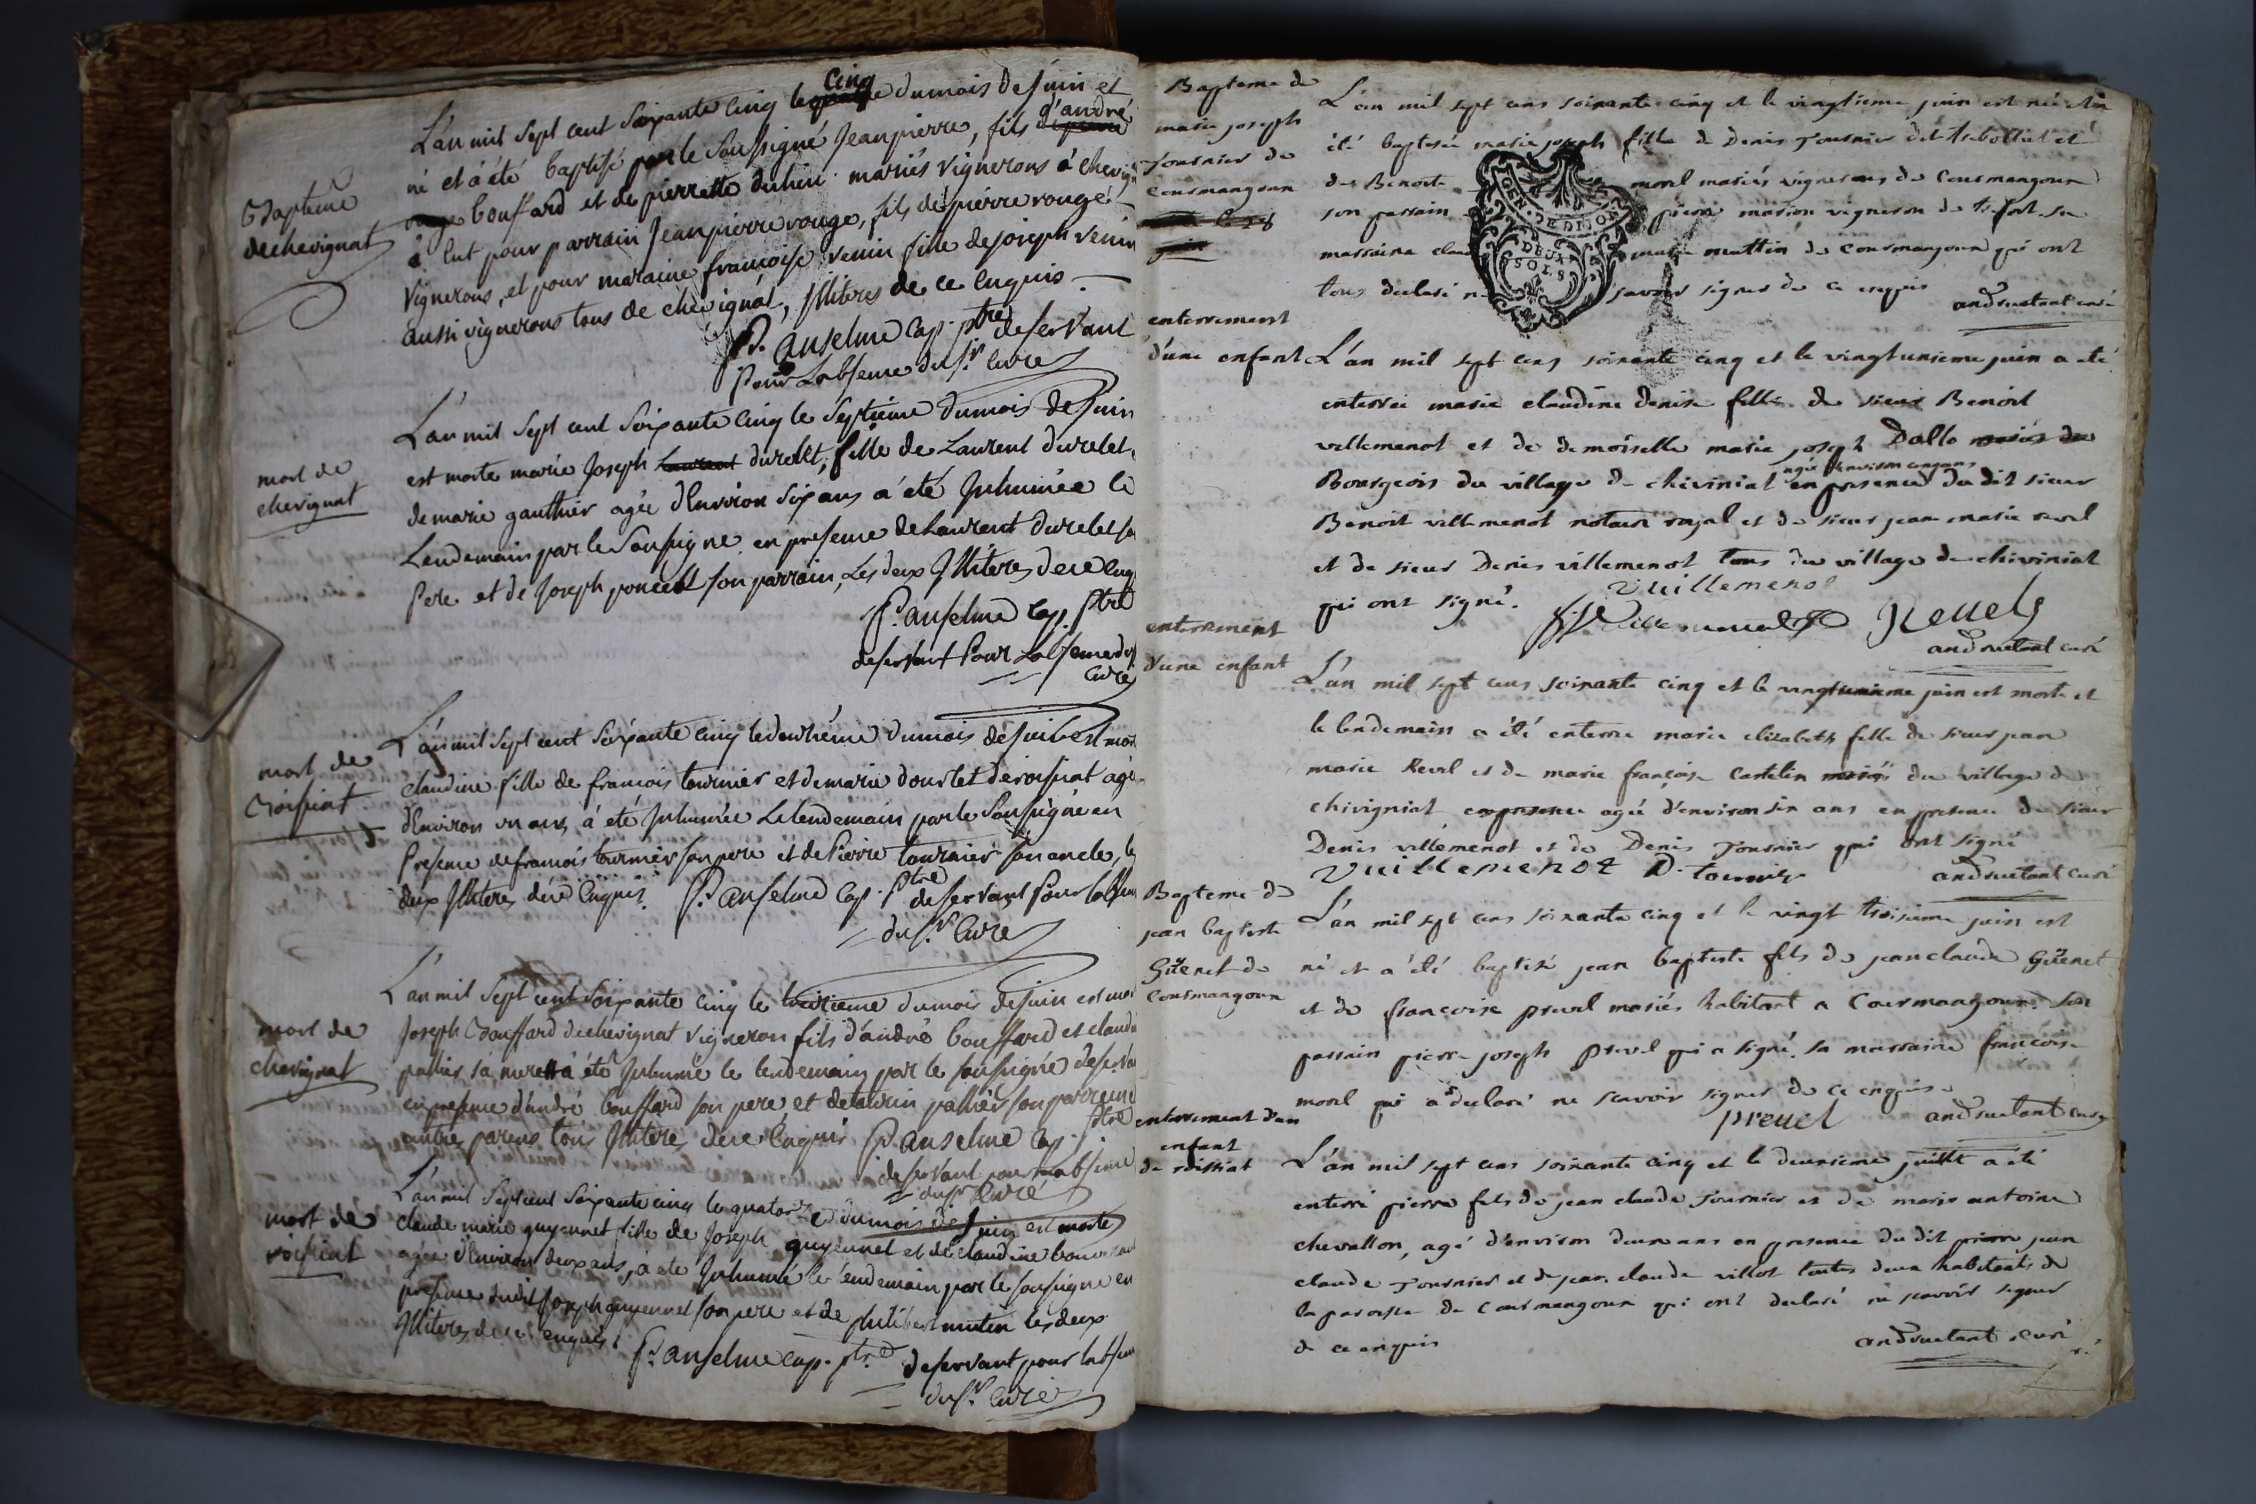 Bapteme
de chevignat
L'an mil sept cent soixante cinq le cinq du mois de juin et
né et à été baptisé par le soussigné Jeanpierre, fils d'andré
bouffard et de pierrette duhin mariés vignerons à chevign
à Eut pour parrain Jeanpierre rouge, fils de pierre rouge
vignerons, et pour maraine francoise venin fille de joseph venin
aussi vignerons tous de chevignat, Illiteres de ce Enquis
P. anselme Cap. ptre deservant
Pour Labsence du Sr. Curé
mort de
chevignat
L'an mil sept cent soixante cinq le septieme du mois de juin
est morte marie Joseph durelet, fille de Laurent durelet,
de marie gauthier agée d'Environ six ans a été Inhumée le
Lendemain par le soussigné en presence de Laurent durelet so
Pere et de Joseph poncet son parrain, Les deux Illiteres de ce Enq
P. anselme Cap. ptre
deservant Pour Labsence du
Curé
mort de
roissiat
L'an mil sept cent soixante cinq le douzième du mois de juin est mor
claudine fille de francois tournier et de marie dourlet de roissiat agé
d'Environ un ans, à été Inhumée Le lendemain par le soussigné en
Presence de francois tournier son pere et de Pierre tournier son oncle, le
deux Illiteres de ce Enquis. P. anselme Cap. Ptre deservant Pour labsen
du Sr. Curé
mort de
chevignat
L'an mil sept cent soixante cinq le treizieme du mois de juin est mor
Joseph Bouffard de chevignat vigneron fils d'andré bouffard et claudi
pallier sa mere à été Inhumé le lendemain par le soussigné deserva
en presence d'andré bouffard son pere, et de pallier son parrein et
autres parens tous Illiteres de ce Enquis P. anselme Cap. ptre
deservant pour Labsence
du Sr Curé
mort de
roissiat
L'an mil sept cent soixante cinq le quatorze du mois de juin est morte
claude marie guyennet fille de Joseph guyennet et de claudine
agée d'Environ deux ans, à eté Inhumé le lendemain par le soussigné en
presence dudit Joseph guyennet son pere et de philibert mutin les deux
Illiteres de ce enquis. P. anselme cap. ptre deservant pour labsen
du Sr. Curé
Bapteme de
marie joseph
fournier de
Cousmangoux
L'an mil sept cens soixante cinq et le vingtieme juin est née et a
été baptisée marie joseph fille de Denis Fournier dit et
de Benoite morel mariés vignerons de Cousmangoux
son parrain pierre marion vigneron de sa
marraine clau mattin de Cousmangoux qui ont
tous declaré n savoir signer de ce enquis
curé
enterrement
d'une enfant
L'an mil sept cens soixante cinq et le vingtunieme juin a eté
enterrée marie claudine denise fille de sieur Benoit
villemenot et de demoiselle marie joseph Dallo
agée d'environ cinq ans
Bourgeois du village de cheviniat en presence du dit sieur
Benoit villemenot notaire royal et de sieur jean marie revel
et de sieur Denis villemenot tous du village de cheviniat
qui ont signé. Vuillemenot
Reuel
curé
enterrement
d'une enfant
L'an mil sept cens soixante cinq et le vingtunieme juin est morte et
le lendemain a été enterre marie elizabeth fille de sieur jean
marie Revel et de marie françoise Castelin du village de
chivigniat agée d'environ six ans en presence de sieur
Denis villemenot et de Denis Fournier qui ont signé
Vuillemenot D. tournier
curé
Bapteme de
jean baptiste
Güenet de
Cousmangoux
L'an mil sept cens soixante cinq et le vingt troisieme juin est
né et a été baptisé jean baptiste fils de jean claude Güenet
et de françoise prevel mariés habitant a Cousmangoux. son
parrain pierre joseph prevel qui a signé. sa marraine françoise
morel qui a declaré ne scavoir signer de ce enquis
preuel curé
enterrement d'un
enfant
de roissiat
L'an mil sept cens soixante cinq et le deuxieme juillet a été
enterré pierre fils de jean claude Fournier et de marie antoine
chevallon, agé d'environ deux ans en presence du dit jean
claude Fournier et de jean claude villot toutes deux habitants de
la paroisse de Cousmangoux qui ont declaré ne scavoir signer
de ce enquis
curé
GEN. DE DIJON
DEUX
SOLS